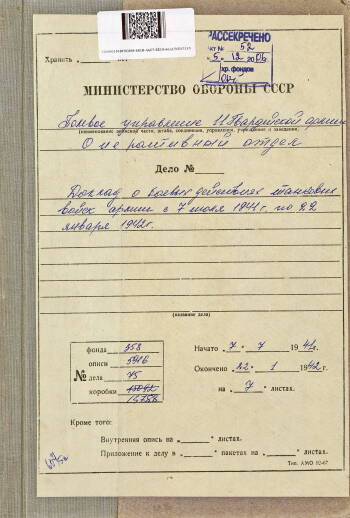 РАССЕКРЕЧЕНО
Акт № 52
5. 12 2006
Хранить
МИНИСТЕРСТВО ОБОРОНЫ СССР
Полевое управление 11 Гвардейской армии
(наименование воинской части, штаба, соединения, управления, учреждения и заведения)
Оперативный отдел
Дело №
Доклад о боевых действиях танковых
войск армии с 7 июля 1941 г. по 22
января 1942г.
(название дела)
фонда 358
описи 5916
№ дела 75
коробки
Начато 7 " 7 1941г.
Окончено 22 " 1 1942 г.
на 7 " листах.
Кроме того:
Внутренняя опись на " листах.
Приложение к делу в " пакетах на " листах.
Тип. АМО